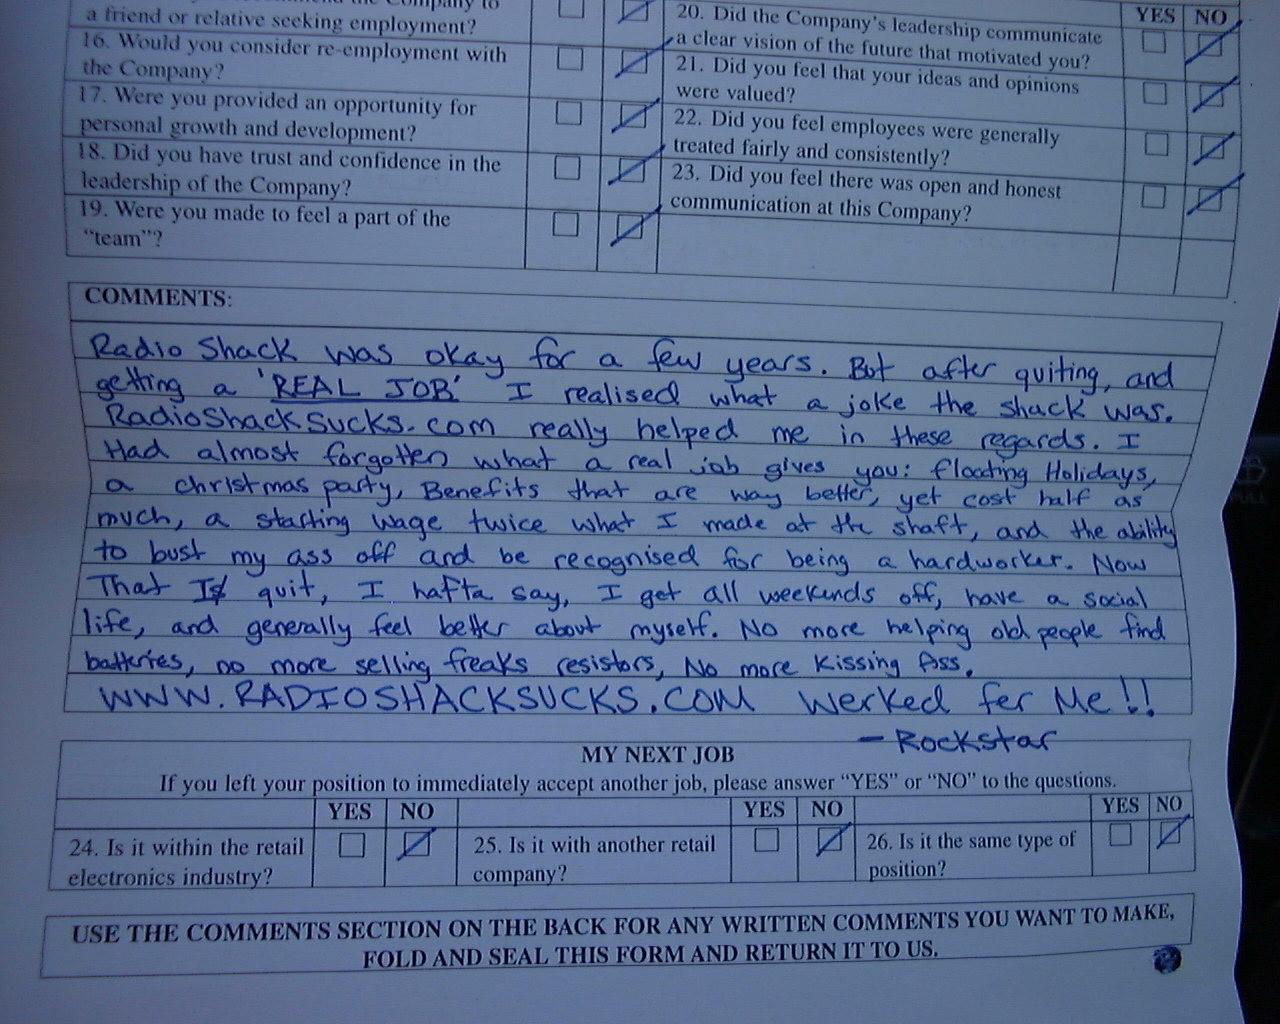 a friend or relative seeking employment?
16. Would you consider re-employment with
the Company?
17. Were you provided an opportunity for
personal growth and development?
18. Did you have trust and confidence in the
leadership of the Company?
19. Were you made to feel a part of the
“team”?
YES NO
20. Did the Company’s leadership communicate
a clear vision of the future that motivated you?
21. Did you feel that your ideas and opinions
were valued?
22. Did you feel employees were generally
treated fairly and consistently?
23. Did you feel there was open and honest
communication at this Company?
COMMENTS:
Radio Shack was okay for a few years. But after quiting, and
getting a 'REAL JOB' I realised what a joke the shack was.
RadioShackSucks.com really helped me in these regards. I
Had almost forgotten what a real job gives you: floating Holidays,
a christmas party, Benefits that are way better, yet cost half as
much, a starting wage twice what I made at the shaft, and the ability
to bust my ass off and be recognised for being a hardworker. Now
That I quit, I hafta say, I get all weekends off, have a social
life, and generally feel better about myself. No more helping old people find
batteries, no more selling freaks resistors, No more Kissing Ass.
WWW.RADIOSHACKSUCKS.COM Werked fer Me!!
- Rockstar
MY NEXT JOB
If you left your position to immediately accept another job, please answer “YES” or “NO” to the questions.
YES NO YES NO YES NO
24. Is it within the retail
electronics industry?
25. Is it with another retail
company?
26. Is it the same type of
position?
USE THE COMMENTS SECTION ON THE BACK FOR ANY WRITTEN COMMENTS YOU WANT TO MAKE,
FOLD AND SEAL THIS FORM AND RETURN IT TO US.